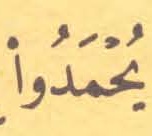 يُحْمَدُواْ